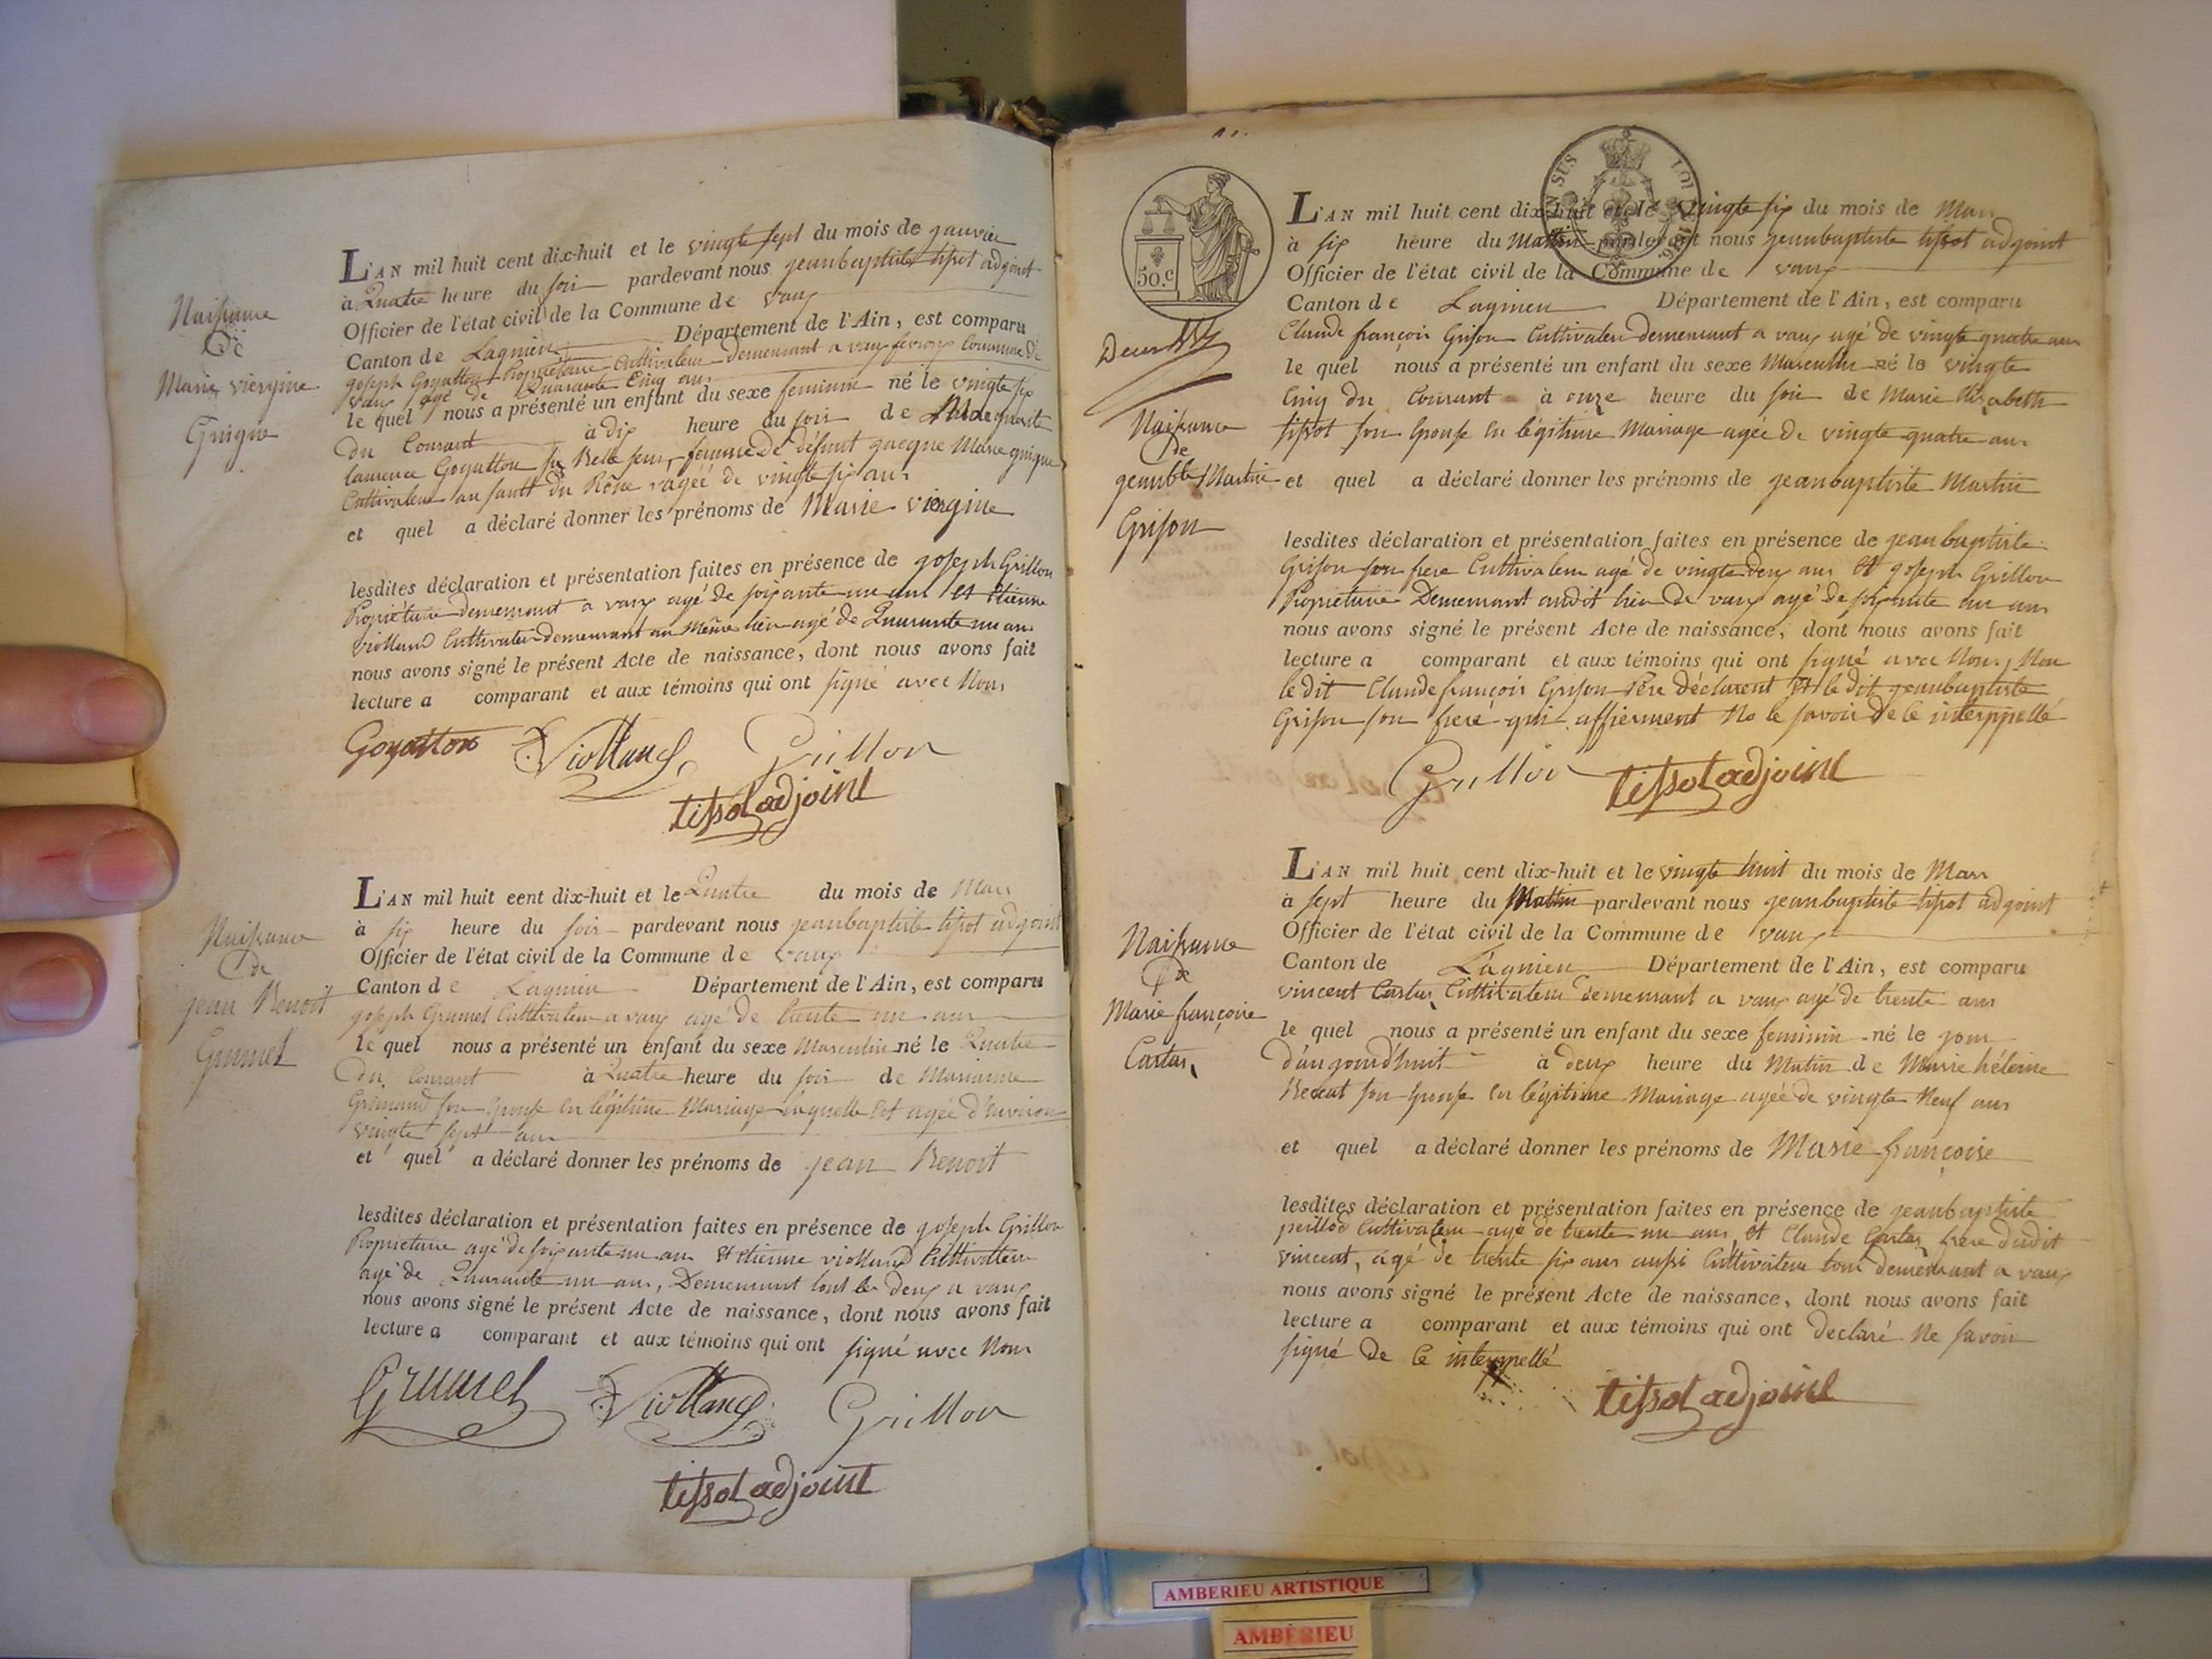 Naissance
De
Marie viergine
Guigue
L'AN mil huit cent dix-huit et le vingte sept du mois de janvier
à Quatre heure du soir pardevant nous jeanbaptiste tissot adjoint
Officier de l'état civil de la Commune de vaux
Canton de Lagnieu Département de l'Ain, est comparu
joseph Goyatton Propriétaire Cultivateur demeurant a vaux fevroy Commune de
vaux agé de Quarante Cinq ans
le quel nous a présenté un enfant du sexe feminin né le vingte six
du Courant à dix heure du soir de Marguerite
laurence Goyatton sa Belle seur, femme de défunt jacque Marie guigue
Cultivateur au sault du Rône agéé de vingte six ans
et quel a déclaré donner les prénoms de Marie viergine
lesdites déclaration et présentation faites en présence de joseph Grillon
Propriétaire demeurant a vaux agé de soixante un ans et Etienne
violland Cultivateur demeurant au même lieu agé de Quarante un ans
nous avons signé le présent Acte de naissance, dont nous avons fait
lecture a comparant et aux témoins qui ont signé avec Nous
Goyatton Violland Grillon
tissot adjoint
Naissance
De
jean Benoit
Grumet
L'AN mil huit cent dix-huit et le Quatre du mois de Mars
à six heure du soir pardevant nous jeanbaptiste tissot adjoint
Officier de l'état civil de la Commune de vaux
Canton de Lagnieu Département de l'Ain, est comparu
joseph Grumet Cultivateur a vaux agé de trente un ans
le quel nous a présenté un enfant du sexe Masculin né le Quatre
du Courant à Quatre heure du soir de Marianne
Grimand son Epouse en légitime Mariage laquelle est agée d'environ
vingte sept ans
et quel a déclaré donner les prénoms de jean Benoit
lesdites déclaration et présentation faites en présence de joseph Grillon
Propriétaire agé de soixante un ans et Etienne violland Cultivateur
agé de Quarante un ans, Demeurant tout les deux a vaux
nous avons signé le présent Acte de naissance, dont nous avons fait
lecture a comparant et aux témoins qui ont signé avec Nous
Grumet Violland Grillon
tissot adjoint
50.c
Naissance
de
jeanbte Martin
Grison
L'AN mil huit cent dix-huit et le vingte six du mois de Mars
à six heure du Mattin pardevant nous jeanbaptiste tissot adjoint
Officier de l'état civil de la Commune de vaux
Canton de Lagnieu Département de l'Ain, est comparu
Claude françois Grison Cultivateur demeurant a vaux agé de vingte quatre ans
le quel nous a présenté un enfant du sexe Masculin né le vingte
Cinq du Courant à onze heure du soir de Marie Elisabeth
tissot son Epouse en légitime Mariage agée de vingte quatre ans
et quel a déclaré donner les prénoms de jeanbaptiste Martin
lesdites déclaration et présentation faites en présence de jeanbaptiste
Grison son frere Cultivateur agé de vingte deux ans et joseph Grillon
Proprietaire Demeurant audit lieu de vaux agé de soixante un ans
nous avons signé le présent Acte de naissance, dont nous avons fait
lecture a comparant et aux témoins qui ont signé avec Nous, Non
le dit Claude françois Grison Pere déclarent et le dit jeanbaptiste
Grison son freré qui affierment No le savoir de ce interppellé
Grillon tissot adjoint
Naissance
De
Marie françoise
Cartas
L'AN mil huit cent dix-huit et le vingte huit du mois de Mars
à sept heure du Mattin pardevant nous jeanbaptiste tissot adjoint
Officier de l'état civil de la Commune de vaux
Canton de Lagnieu Département de l'Ain, est comparu
vincent Cartas Cultivateur demeurant a vaux agé de trente ans
le quel nous a présenté un enfant du sexe feminin né le jour
d'aujourd'huit à deux heure du Matin de Marie héleine
son Epouse en légitime Mariage agéé de vingte Neuf ans
et quel a déclaré donner les prénoms de Marie françoise
lesdites déclaration et présentation faites en présence de jeanbaptiste
peillod Cultivateur agé de trente un ans, et Claude Cartas frere dudit
vincent, agé de trente six ans aussi Cultivateur tous demeurant a vaux
nous avons signé le présent Acte de naissance, dont nous avons fait
lecture a comparant et aux témoins qui ont declaré Ne savoir
signé de ce interppellé
tissot adjoint
AMBERIEU ARTISTIQUE
AMBÉRIEU